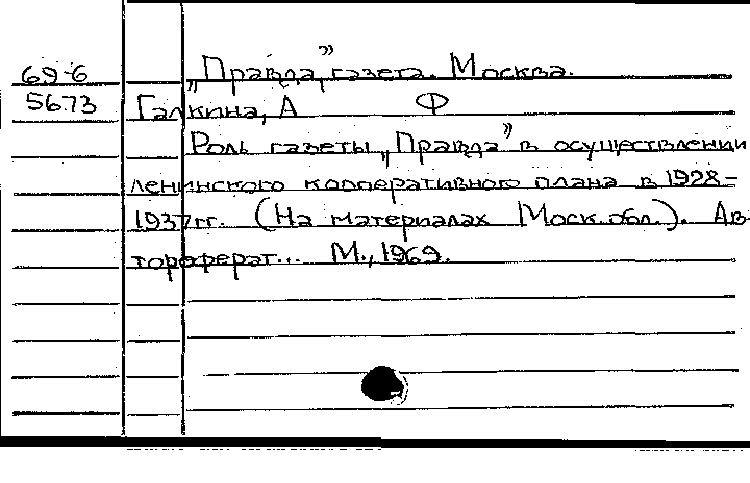 69-6 „Правда”, газета. Москва.
5673 Галкина, А Ф
Роль газеты „Правда” в осуществлении
ленинского кооперативного плана в 1928-
1937гг. (На материалах Моск. обл.). Ав-
тореферат... М., 1969.